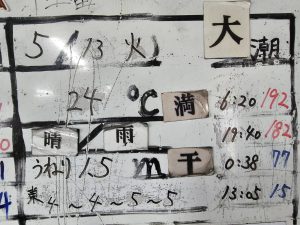 5/13 火 大潮
24 ℃ 満 6:20 192
晴/雨 19:40 182
うねり 1.5 m 干 0:38 77
4~4~5~5 13:05 15